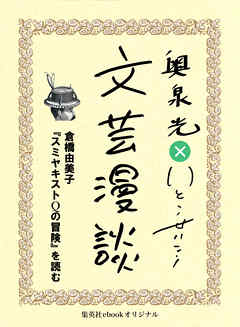 奥泉光×いとうせいこう
文芸漫談
倉橋由美子
『スミヤキストQの冒険』を読む
集英社ebookオリジナル